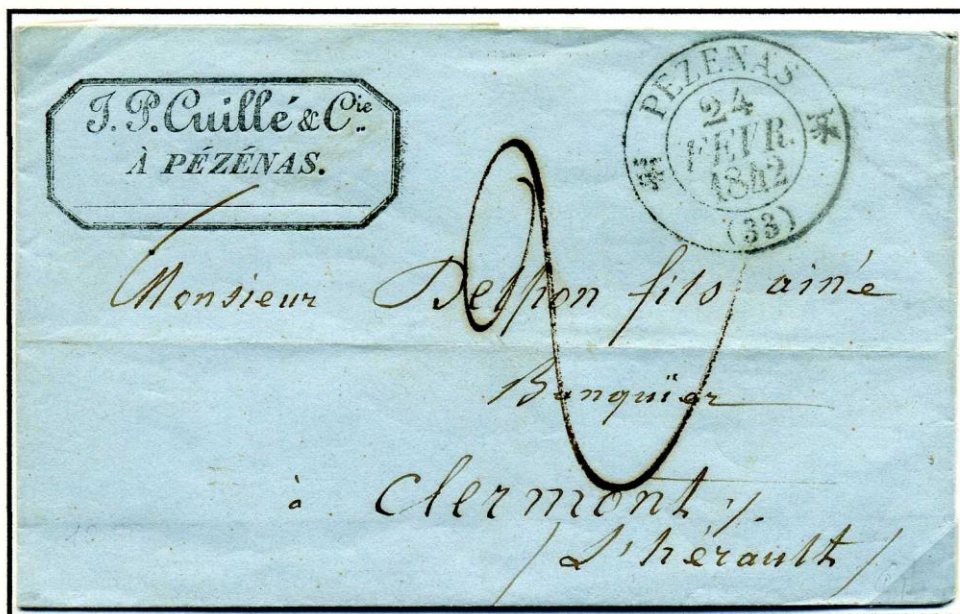 J. P. Cuillé & Cie
À PÉZÉNAS.
PEZENAS
24
FEVR.
1842
(33)
2
Monsieur Delpon fils ainé
Banquier
à Clermont
/ L'hérault /